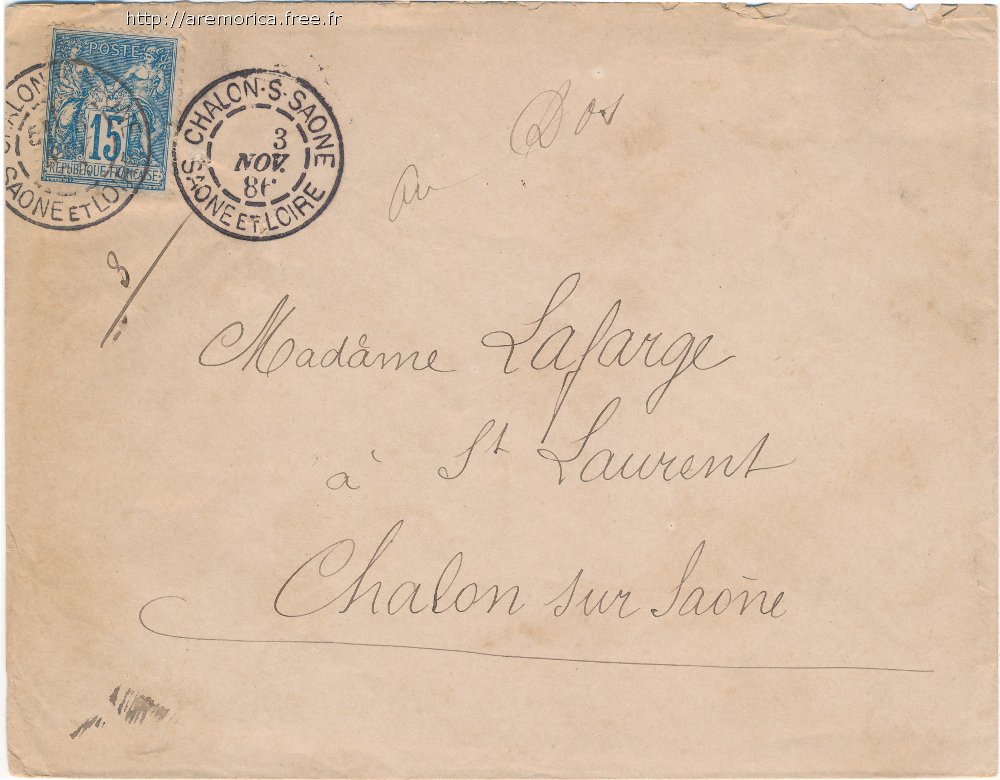 http://aremorica.free.fr
POSTE
15
REPUBLIQUE FRANCAISE
CHALON
SAONE ET LOI
CHALON-S-SAONE
3
NOV.
86
SAONE ET LOIRE
au Dos
Madâme Lafarge
à St Laurent
Chalon sur Saône